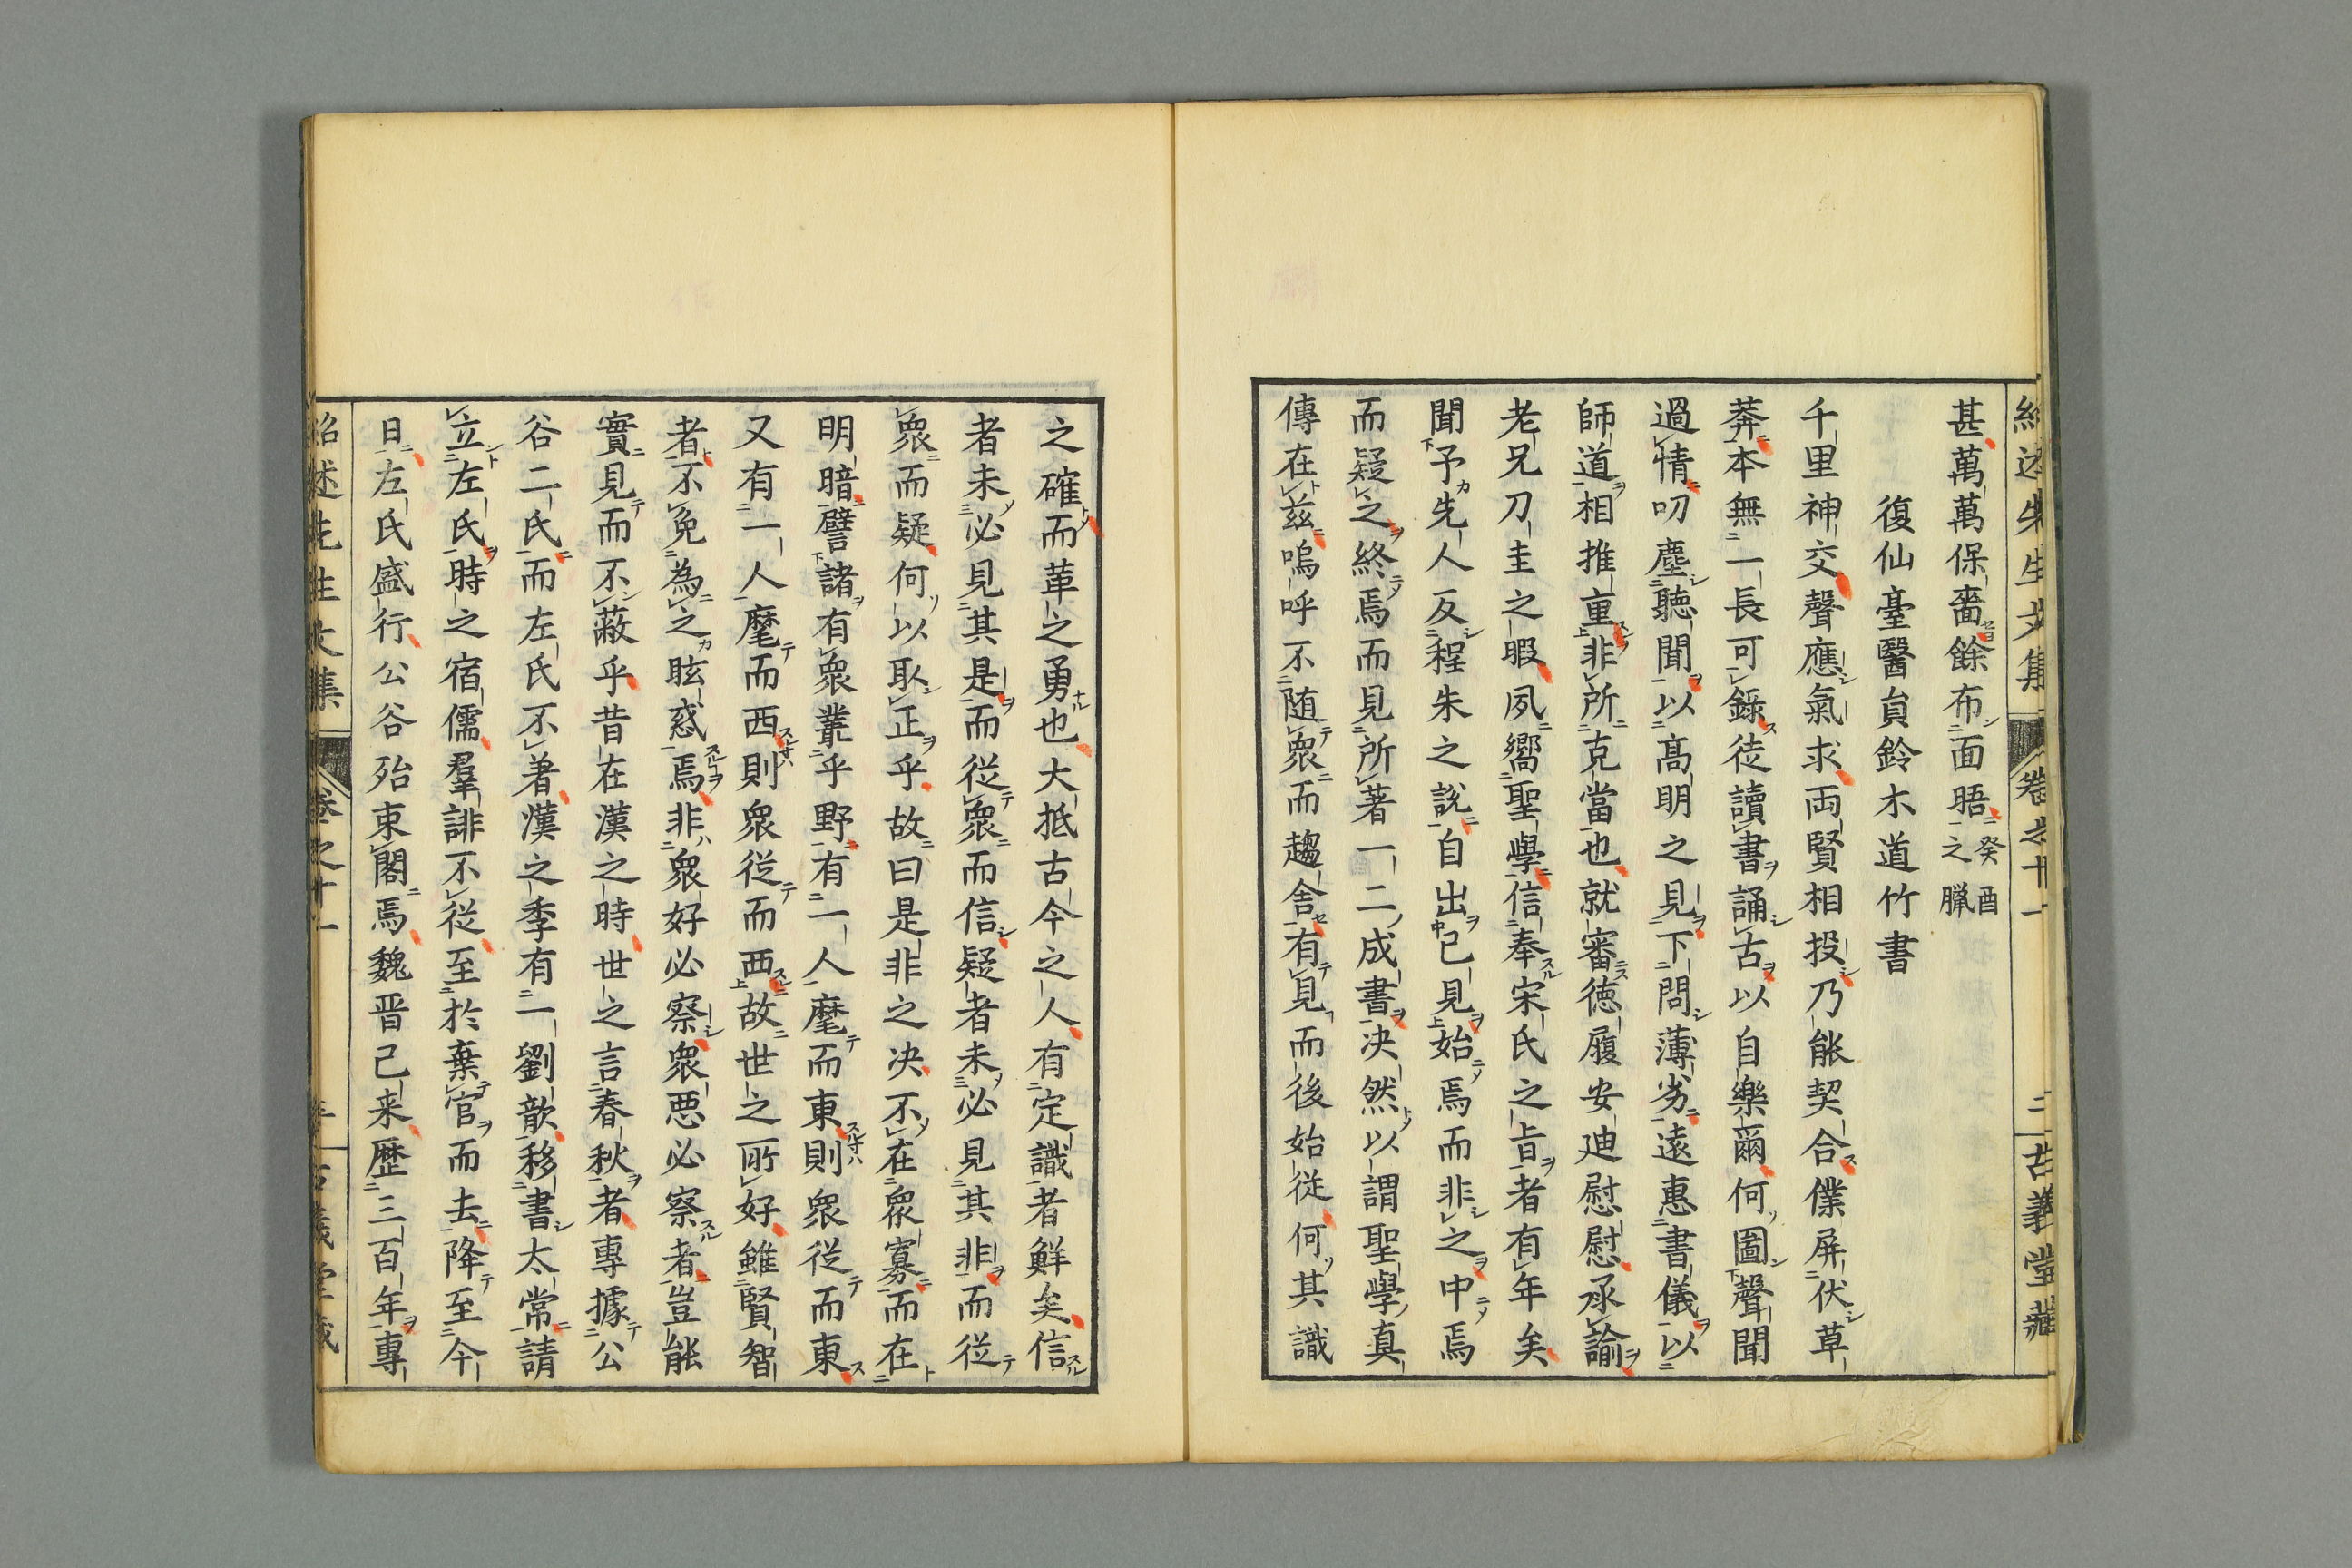 甚萬萬保嗇餘布面晤癸酉之臘
復仙臺醫員鈴木道竹書
千里神交聲應氣求両賢相投乃能契合僕屏伏草
莽本無一長可錄徒讀書誦古以自樂爾何圖聲聞
過情叨塵聽聞以高明之見下問薄劣遠惠書儀以
師道相推重非所克當也就審德履安迪慰慰承諭
老兄刀圭之暇夙嚮聖學信奉宋氏之旨者有年矣
聞予先人反程朱之說自出己見始焉而非之中焉
而疑之終焉而見所著一二成書决然以謂聖學真
傳在玆嗚呼不随衆而趨舍有見而後始従何其識
之確而革之勇也大抵古今之人有定識者鮮矣信
者未必見其是而従衆而信疑者未必見其非而従
衆而疑何以取正乎故曰是非之决不在衆寡而在
明暗譬諸有衆叢乎野有一人麾而東則衆従而東
又有一人麾而西則衆従而西故世之所好雖賢智
者不免為之眩惑焉非衆好必察衆悪必察者豈能
實見而不蔽乎昔在漢之時世之言春秋者專據公
谷二氏而左氏不著漢之季有一劉歆移書太常請
立左氏時之宿儒羣誹不従至於棄官而去降至今
日左氏盛行公谷殆束閣焉魏晋已来歷三百年專
紹述先生文集
卷之十一
古義堂藏